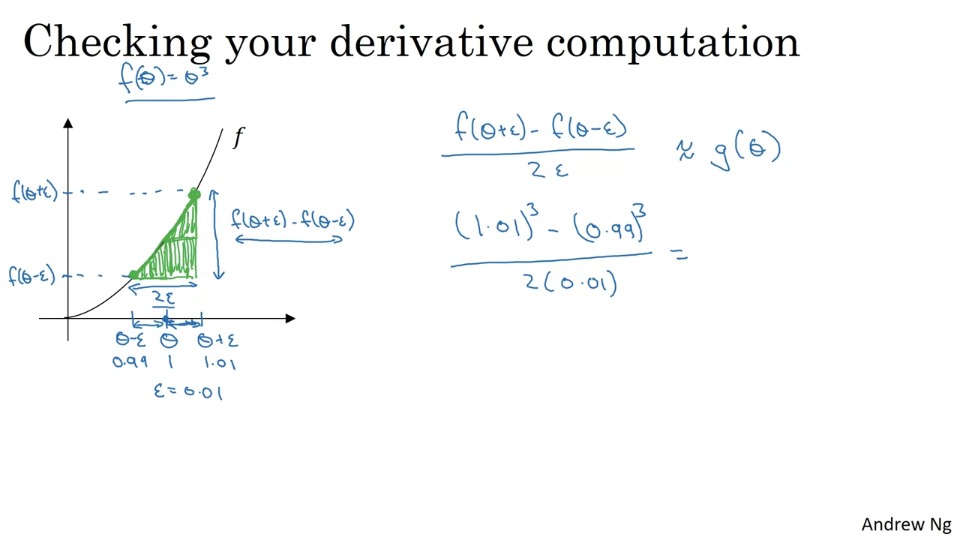 Checking your derivative computation
f(θ) = θ³
f
f(θ+ε)
f(θ-ε)
f(θ+ε) - f(θ-ε)
2ε
θ-ε θ θ+ε
0.99 1 1.01
ε = 0.01
f(θ+ε) - f(θ-ε)
2ε
≈ g(θ)
(1.01)³ - (0.99)³
2(0.01)
=
Andrew Ng